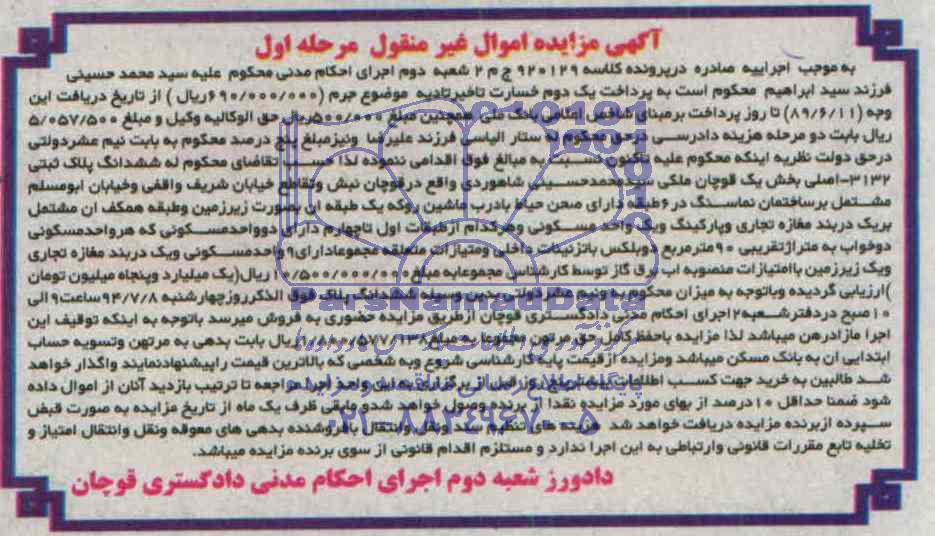 آگهی مزایده اموال غیر منقول مرحله اول
به موجب اجراییه صادره درپرونده کلاسه ۹۲۰۱۲۹ ج م ۲ شعبه دوم اجرای احکام مدنی محکوم علیه سید محمد حسینی
فرزند سید ابراهیم محکوم است به پرداخت یک دوم خسارت تاخیرتادیه موضوع جرم (۶۹۰/۰۰۰/۰۰۰ریال ) از تاریخ دریافت این
وجه (۸۹/۶/۱۱) تا روز پرداخت برمبنای شاخص اعلامی بانک ملی همچنین مبلغ ۵۰۰/۰۰۰ریال حق الوکاله وکیل و مبلغ ۵/۰۵۷/۵۰۰
ریال بابت دو مرحله هزینه دادرسی درحق محکوم له ستار الیاسی فرزند علیرضا ونیزمبلغ پنج درصد محکوم به بابت نیم عشردولتی
درحق دولت نظربه اینکه محکوم علیه تاکنون نسبت به مبالغ فوق اقدامی ننموده لذا تقاضای محکوم له ششدانگ پلاک ثبتی
۳۱۳۲-اصلی بخش یک قوچان ملکی سیدمحمدحسینی شاهوردی واقع درقوچان نبش وتقاطع خیابان شریف واقفی وخیابان ابومسلم
مشتمل برساختمان نماسنگ در ۶طبقه دارای صحن حیاط بادرب ماشین روکه یک طبقه ان بصورت زیرزمین وطبقه همکف ان مشتمل
بریک دربند مغازه تجاری وپارکینگ ویک واحد مسکونی وهرکدام ازطبقات اول تاچهارم دارای دوواحدمسکونی که هرواحدمسکونی
دوخواب به متراژتقریبی ۹۰مترمربع دوبلکس باتزئینات داخلی ومتیازات متعلقه مجموعادارای۹واحدمسکونی ویک دربند مغازه تجاری
ویک زیرزمین باامتیازات منصوبه اب برق گاز توسط کارشناس مجموعابه مبلغ ۱۰/۵۰۰/۰۰۰/۰۰۰ریال(یک میلیارد وپنجاه میلیون تومان
)ارزیابی گردیده وباتوجه به میزان محکوم به ونیم عشردولتی بدین وسیله ششدانگ پلاک فوق الذکرروزچهارشنبه ۹۴/۷/۸ساعت۹ الی
۱۰صبح دردفترشعبه۲اجرای احکام مدنی دادگستری قوچان ازطریق مزایده حضوری به فروش میرسد باتوجه به اینکه توقیف این
اجرا مازادرهن میباشد لذا مزایده باحفظ کامل حق مرتهن ریال بابت بدهی به مرتهن وتسویه حساب
ابتدایی ان به بانک مسکن میباشد ومزایده ازقیمت پایه کارشناسی شروع وبه شخصی که بالاترین قیمت راپیشنهادنمایند واگذار خواهد
شد طالبین به خرید جهت کسب اطلاعات روز قبل از برگزاری به این واحد اجرا مراجعه تا ترتیب بازدید آنان از اموال داده
شود ضمنا حداقل ۱۰درصد از بهای مورد مزایده نقدا از برنده وصول خواهد شدو مابقی ظرف یک ماه از تاریخ مزایده به صورت قبض
سپرده ازبرنده مزایده دریافت خواهد شد هزینه های تنظیم سند ونقل وانتقال بافروشنده بدهی های معوقه ونقل وانتقال امتیاز و
تخلیه تابع مقررات قانونی وارتباطی به این اجرا ندارد و مستلزم اقدام قانونی از سوی برنده مزایده میباشد.
دادورز شعبه دوم اجرای احکام مدنی دادگستری قوچان